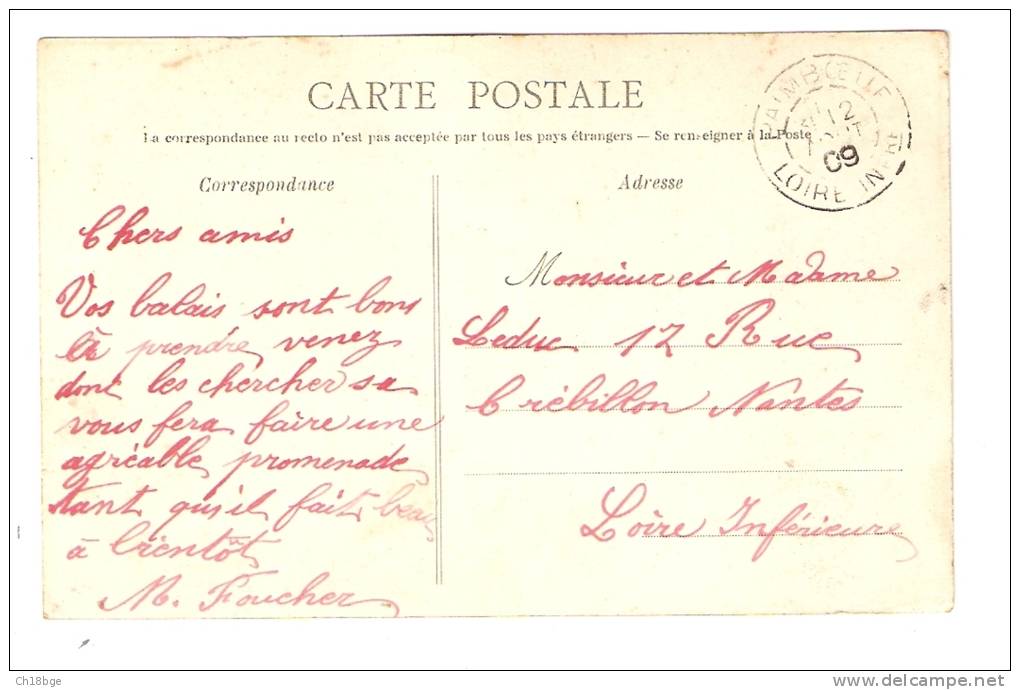 CARTE POSTALE
La correspondance au recto n'est pas acceptée par tous les pays étrangers — Se renseigner à la Poste
PAIMBŒUF
12
09
LOIRE INFRE
Correspondance
Adresse
Chers amis
Vos balais sont bons
à prendre venez
donc les chercher sa
vous fera faire une
agréable promenade
tant qu'il fait beau
à bientôt
M. Foucher
Monsieur et Madame
Leduc 12 Rue
Crébillon Nantes
Loire Inférieure
Ch18bge
www.delcampe.net